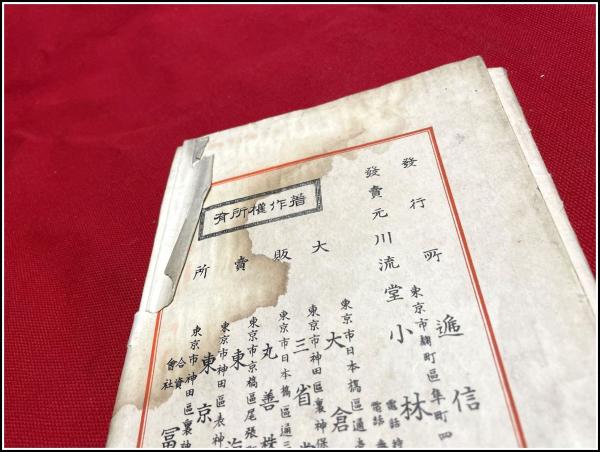 發行所
東京市麹町區隼町四
遞信
發賣元川流堂小林
東京市日本橋區通
大倉
大販賣所
東京市神田區裏神保
三省
東京市日本橋區通三
丸善株
東京市京橋區尾張
東海
東京市神田區表神
東京
東京市神田區裏神
合資會社冨
著作權所有